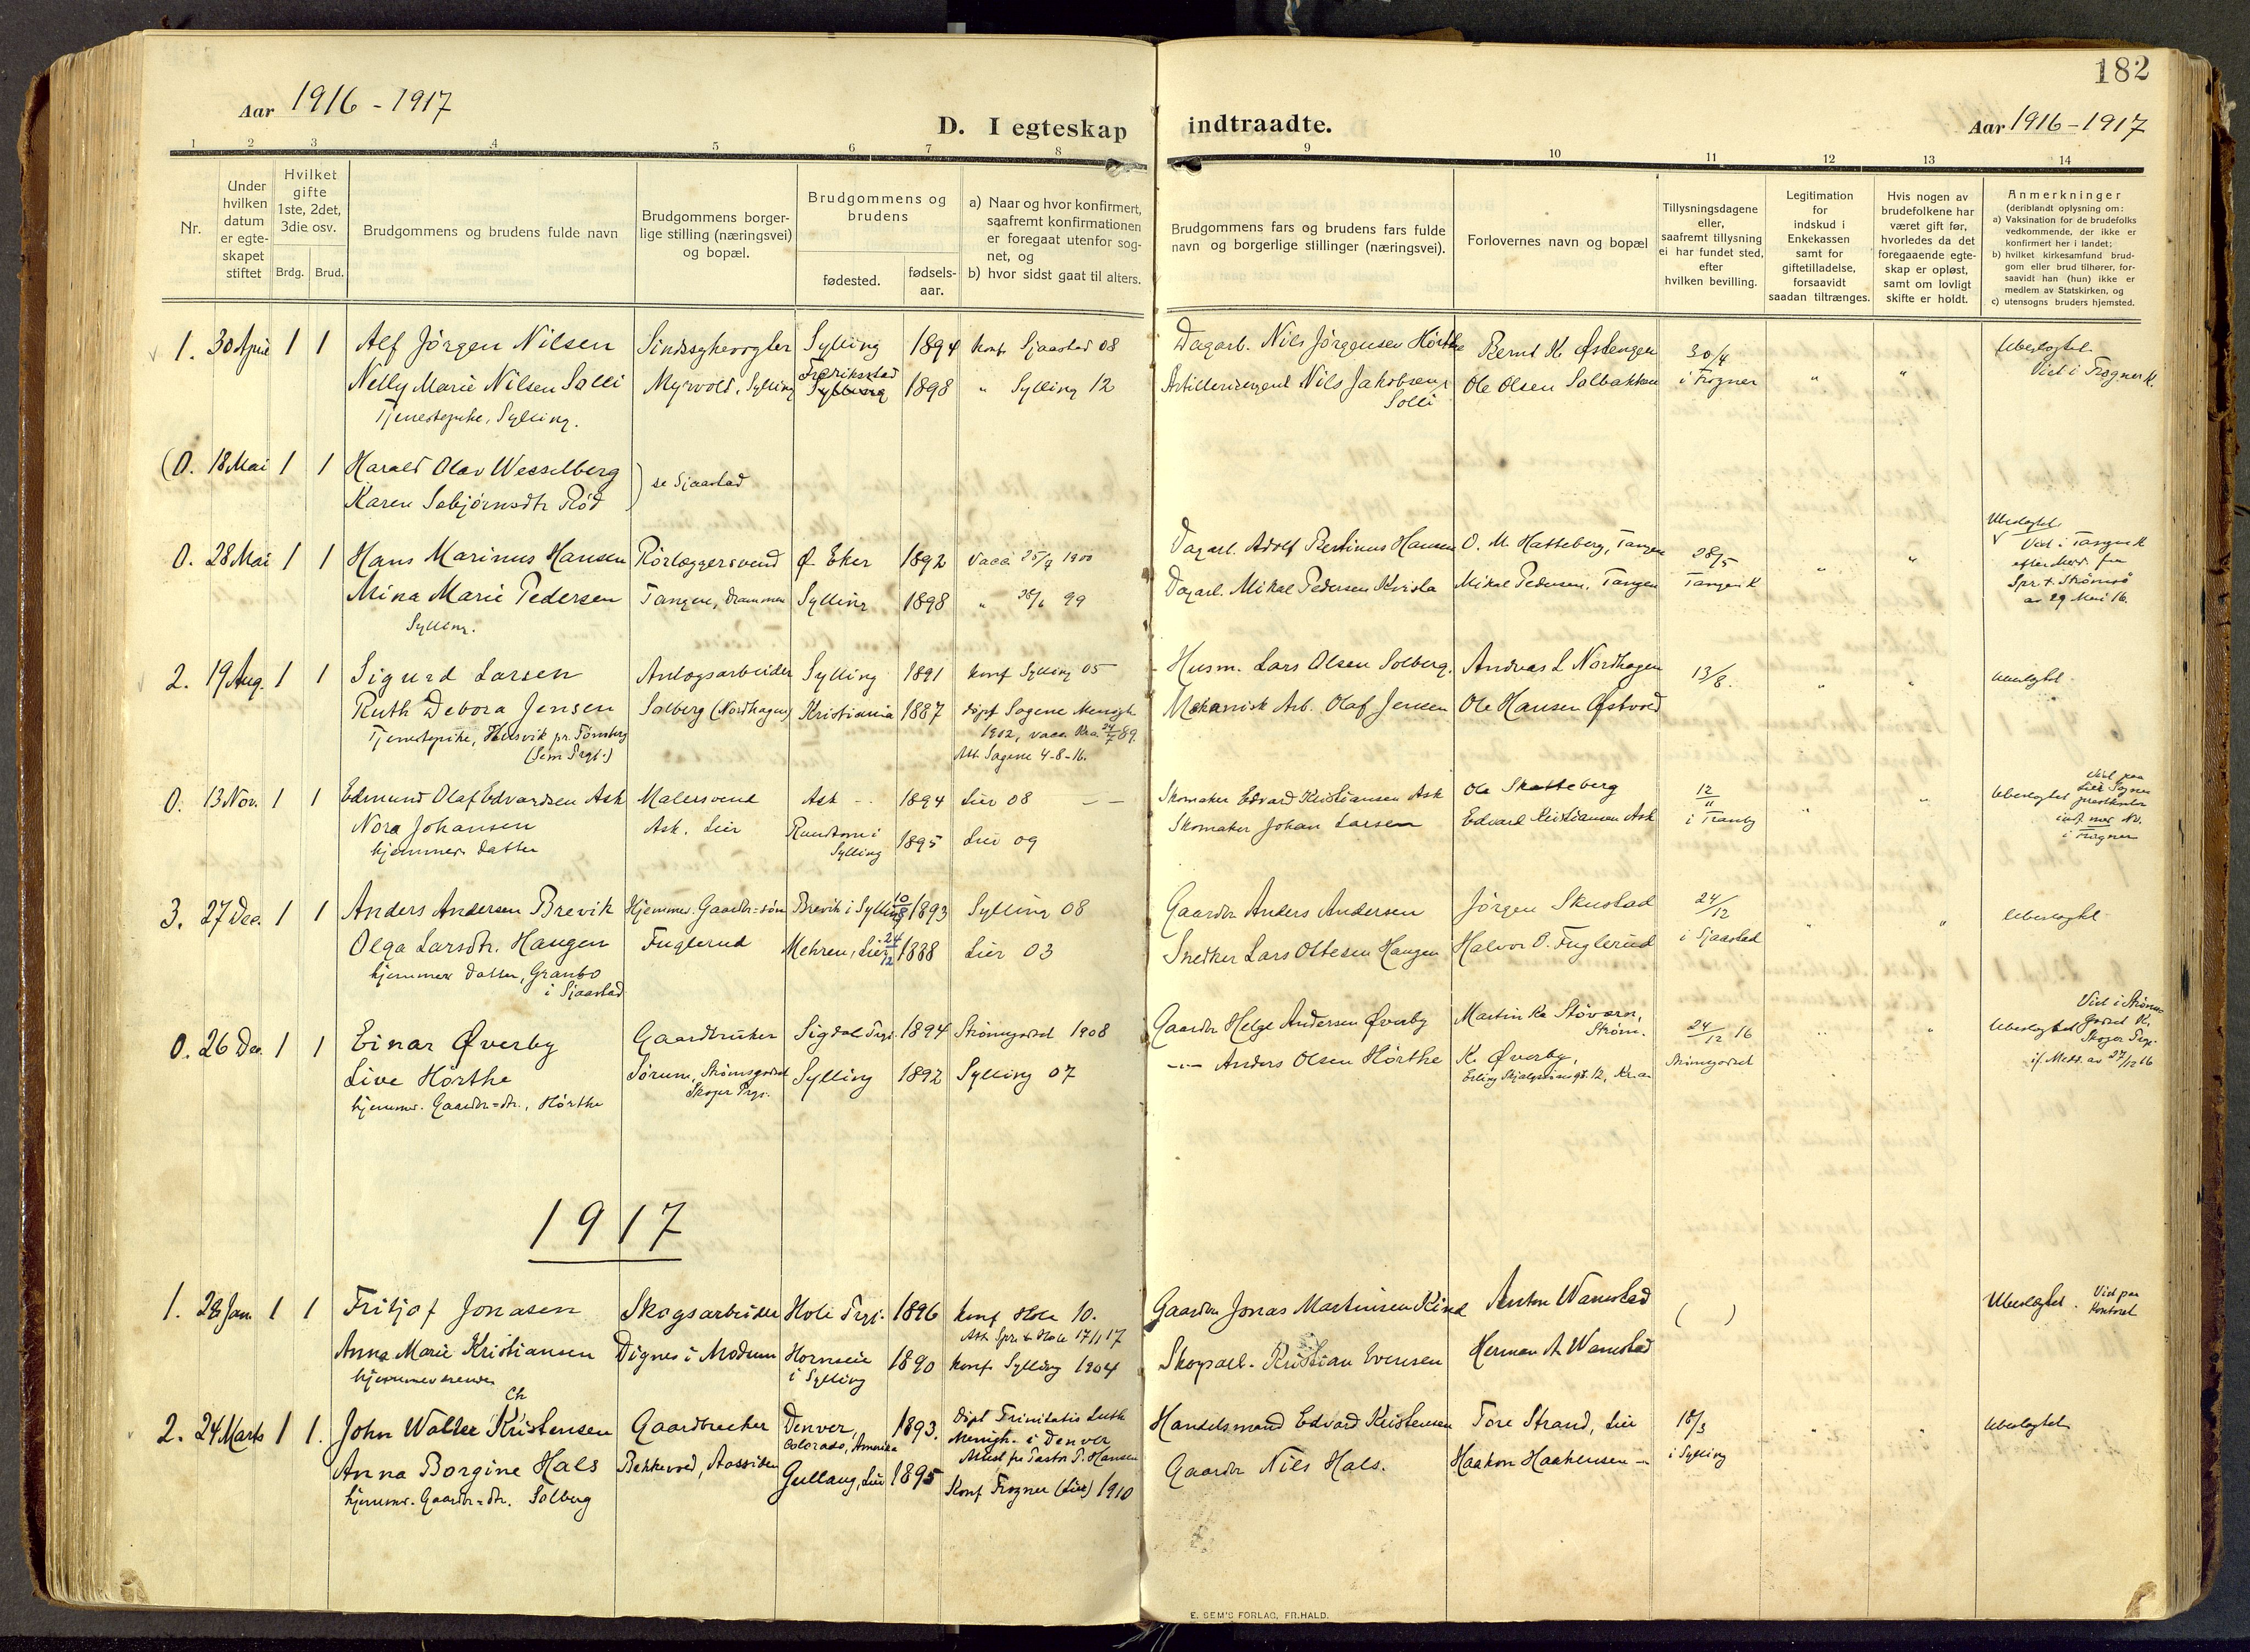 182
Aar 1916 - 1917
D. I egteskap indtraadte.
Aar 1916 - 1917
1 2 3 4 5 6 7 8 9 10 11 12 13 14
Nr.
Under hvilken datum er egteskapet stiftet
Hvilket gifte 1ste, 2det, 3die osv.
Brdg. Brud.
Brudgommens og brudens fulde navn
Brudgommens borgerlige stilling (næringsvei) og bopæl.
Brudgommens og brudens
fødested.
fødselsaar.
a) Naar og hvor konfirmert, saafremt konfirmationen er foregaat utenfor sognet, og
b) hvor sidst gaat til alters.
Brudgommens fars og brudens fars fulde navn og borgerlige stillinger (næringsvei).
Forlovernes navn og bopæl
Tillysningsdagene eller, saafremt tillysning ei har fundet sted, efter hvilken bevilling.
Legitimation for indskud i Enkekassen samt for giftetilladelse, forsaavidt saadan tiltrænges.
Hvis nogen av brudefolkene har været gift før, hvorledes da det foregaaende egteskap er opløst, samt om lovligt skifte er holdt.
Anmerkninger
(deriblandt oplysning om:
a) Vaksination for de brudefolks vedkommende, der ikke er konfirmert her i landet;
b) hvilket kirkesamfund brudgom eller brud tilhører, forsaavidt han (hun) ikke er medlem av Statskirken, og
c) utensogns bruders hjemsted.
1. 30 April 1 1 Alf Jørgen Nilsen Sindssykevogter Sylling 1894 Konf. Sjaastad 08 Dagarb. Nils Jørgensen Hørthe 30/4
Nelly Marie Nilsen Solli Myrvold, Sylling Fredriksstad Sylling 1898 " Sylling 12 Nils Jakobsen Solli Ole Olsen Solbakken i Frogner " "
Viet i Frogner K.
Tjenestepike, Sylling.
(0. 18 Mai 1 1 Harald Olav Wesselberg
) se Sjaastad
Karen Rød
0. 28 Mai 1 1 Hans Marinus Hansen Rørlæggersvend Ø. Eker 1892 Vacc. 1900 Dagarb. Adolf Bertinus Hansen O. M. Hatteberg, Tangen 28/5 " "
Mina Marie Pedersen Tangen, Drammen Sylling 1898 " 99 Dagarb. Mikal Pedersen Mikal Pedersen, Tangen Tangen K
Sylling.
Viet i Tangen K
Spr. t. Strømsø
av 29 Mai 16.
2. 19 Aug. 1 1 Sigurd Larsen Anlægsarbeider Sylling 1891 Konf Sylling 05 Husm. Lars Olsen Solberg. Andreas L Nordhagen 13/8. " "
Ruth Debora Jensen Solberg (Nordhagen) Kristiania 1887 døpt Sagene Menigh. Mekanisk Arb. Olaf Jensen Ole Hansen Østvold
Tjenestepike, Husvik pr. Tønsberg 1902, vacc. Kra. 89
(Sem Prgj.) Att. Sagene 4-8-16.
0. 13 Nov. 1 1 Edmund Olaf Edvardsen Ask Malersvend Ask 1894 Lier 08 Skomaker Edvard Kristiansen Ask Ole Skatteberg 12/11
Nora Johansen Ask. Lier i Sylling 1895 Lier 09 Skomaker Johan Larsen Edvard Kristiansen Ask i Tranby
hjemmev. datter
3. 27 Dec. 1 1 Anders Andersen Brevik Hjemmev. Gaardbr=søn Brevik i Sylling 10/8 1893 Sylling 08 Gaardbr Anders Andersen Jørgen Skustad 24/12
Olga Larsdtr. Haugen Fuglerud Mehren, Lier 24/12 1888 Lier 03 Snedker Lars Ottesen Haugen Halvor O. Fuglerud i Sjaastad
hjemmev. datter, Granbo
i Sjaastad
0. 26 Dec. 1 1 Einar Øverby Gaardbruker Sigdal Prgj. 1894 Strømsgodset 1908 Gaardbr Helge Andersen Øverby Martin 24/12 16
Live Hørthe Sørum, Strømsgodset Sylling 1892 Sylling 07 Anders Olsen Hørthe K. Øverby, Strømsgodset
hjemmev. Gaardbr=dtr., Hørthe Skoger Prgj.
1917
1. 28 Jan. 1 1 Fritjof Jonasen Skogsarbeider Hole Prgj. 1896 Konf Hole 10. Gaardbr Jonas Martinsen Anton Wamstad ( ) Viet paa Kontoret
Att. Spr. t. Hole 17/1 17
Anna Marie Kristiansen Dignes i Modum i Sylling 1890 Konf Sylling 1904 Skogsarb. Kristian Evensen Herman A. Wamstad
hjemmeværende
2. 24 Marts 1 1. John Walter Ch Kristensen Gaardbruker Denver, Colorado, Amerika 1893. Døpt Trinitatis Luth. Menigh. i Denver Handelsmand Edvard Kristensen Tore Strand, Lier 18/3
Attest fr Pastor P. Hansen
Anna Borgine Hals Bakkevold, Aassiden Gullaug, Lier 1895 Konf Frogner (Lier) 1910 Gaardbr Nils Hals. Haakon Haakensen i Sylling
hjemmv. Gaardbr=dtr. Solberg
E. SEM'S FORLAG, FR.HALD.